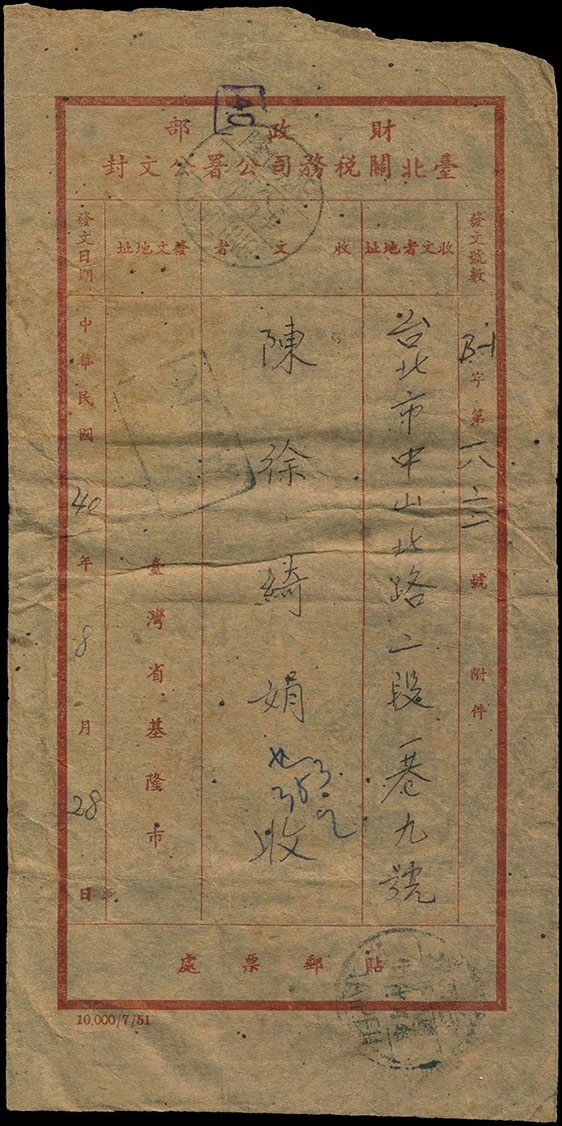 財政部
臺北關稅務司公署公文封
發文號數
字第
號
附件
收文者地址
台北市中山北路二段一巷九號
收文者
陳徐綺娟
收
發文地址
臺灣省基隆市
發文日期
中華民國40年8月28日
貼郵票處
10,000/7/51